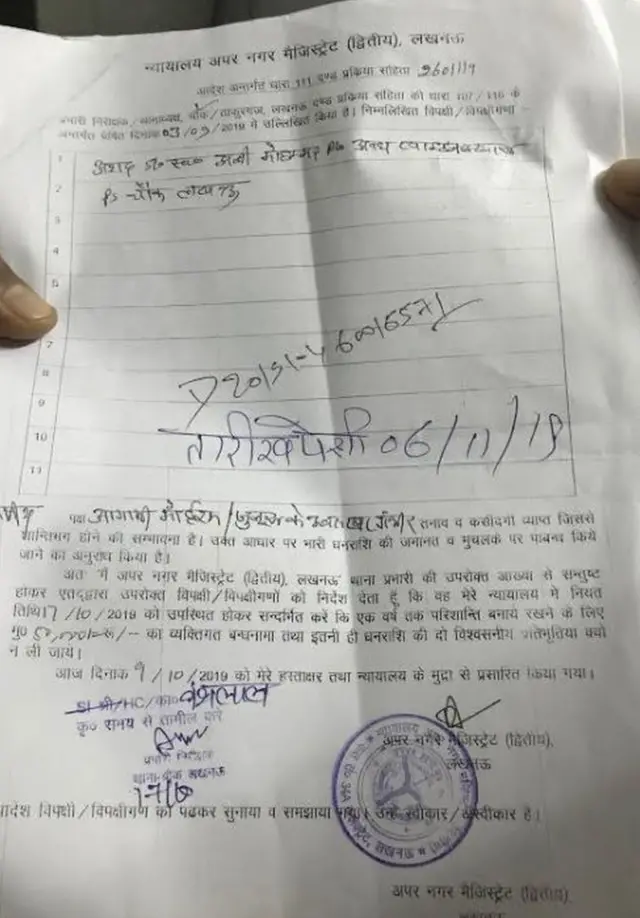 न्यायालय अपर नगर मैजिस्ट्रेट (द्वितीय), लखनऊ
आदेश अन्तर्गत धारा 111 दण्ड प्रक्रिया संहिता 2601/19
प्रभारी निरीक्षक/थानाध्यक्ष, चौक/ठाकुरगंज, लखनऊ दण्ड प्रक्रिया संहिता की धारा 107/116 के
अन्तर्गत प्रेषित दिनांक 03/09/2019 में उल्लिखित किया है। निम्नलिखित विपक्षी/विपक्षीगण
1
2
PS - चौक लखनऊ
3
4
5
7
8
9
तारीख पेशी 06/11/19
10
11
आगामी मोहर्रम/जुलूस के तनाव व कसीदगी व्याप्त जिससे
शान्तिभंग होने की सम्भावना है। उक्त आधार पर भारी धनराशि की जमानत व मुचलके पर पाबन्द किये
जाने का अनुरोध किया है।
अतः मैं अपर नगर मैजिस्ट्रेट (द्वितीय), लखनऊ थाना प्रभारी की उपरोक्त आख्या से सन्तुष्ट
होकर एतद्द्वारा उपरोक्त विपक्षी/विपक्षीगणों को निर्देश देता हूँ कि वह मेरे न्यायालय में नियत
तिथि 17/10/2019 को उपस्थित होकर सन्दर्भित करें कि एक वर्ष तक परिशान्ति बनाये रखने के लिए
मु0 /– का व्यक्तिगत बन्धनामा तथा इतनी ही धनराशि की दो विश्वसनीय प्रतिभूतियां क्यों
न ली जायें।
आज दिनांक 9/10/2019 को मेरे हस्ताक्षर तथा न्यायालय के मुद्रा से प्रसारित किया गया।
SI श्री/HC/का0
कृ0 समय से तामील करें
प्रभारी निरीक्षक
थाना-चौक लखनऊ
अपर नगर मैजिस्ट्रेट (द्वितीय),
लखनऊ
आदेश विपक्षी/विपक्षीगण को पढकर सुनाया व समझाया गया। उन्हें स्वीकार/अस्वीकार है।
अपर नगर मैजिस्ट्रेट (द्वितीय)
लखनऊ